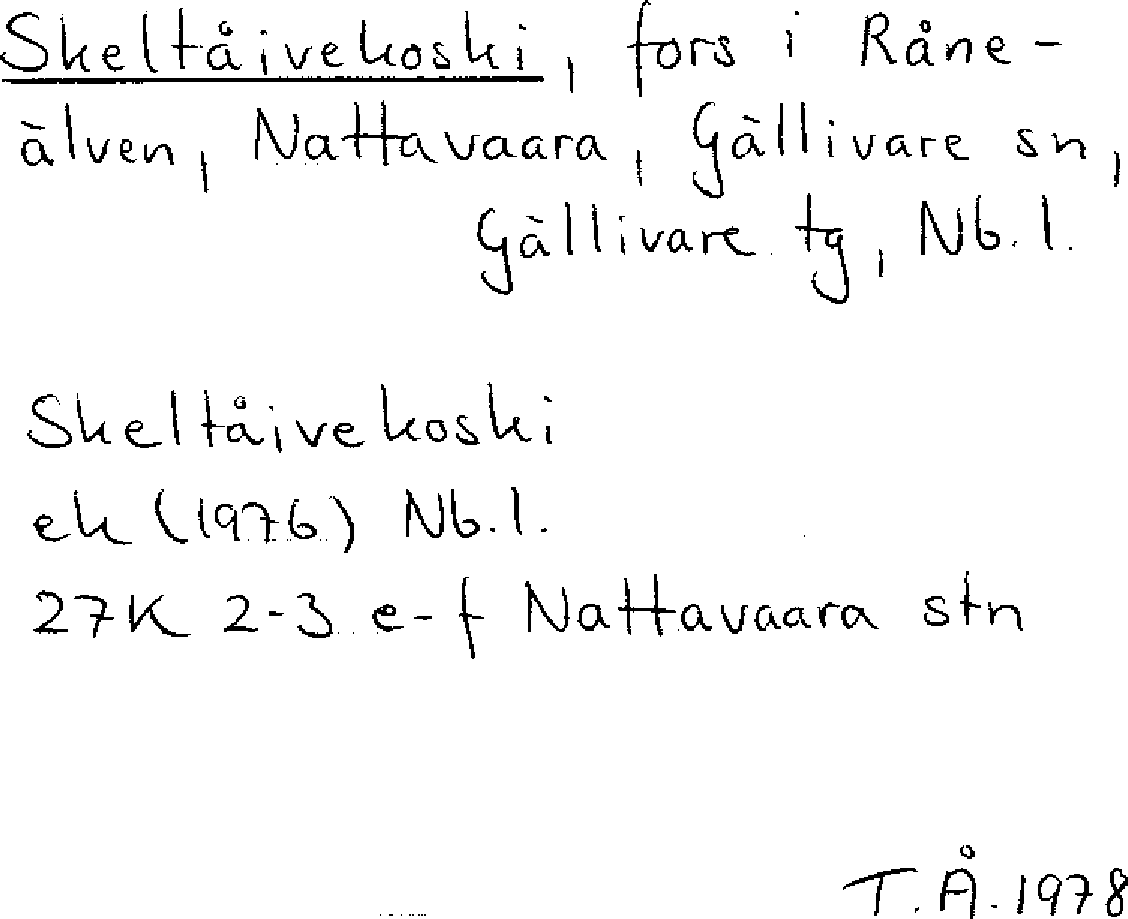 Skeltåivekoski, fors i Råne-
älven, Nattavaara, Gällivare sn,
Gällivare tg, Nb. l.
Skeltåivekoski
ek (1976) Nb. l.
27K 2-3 e-f Nattavaara stn
T. Å. 1978